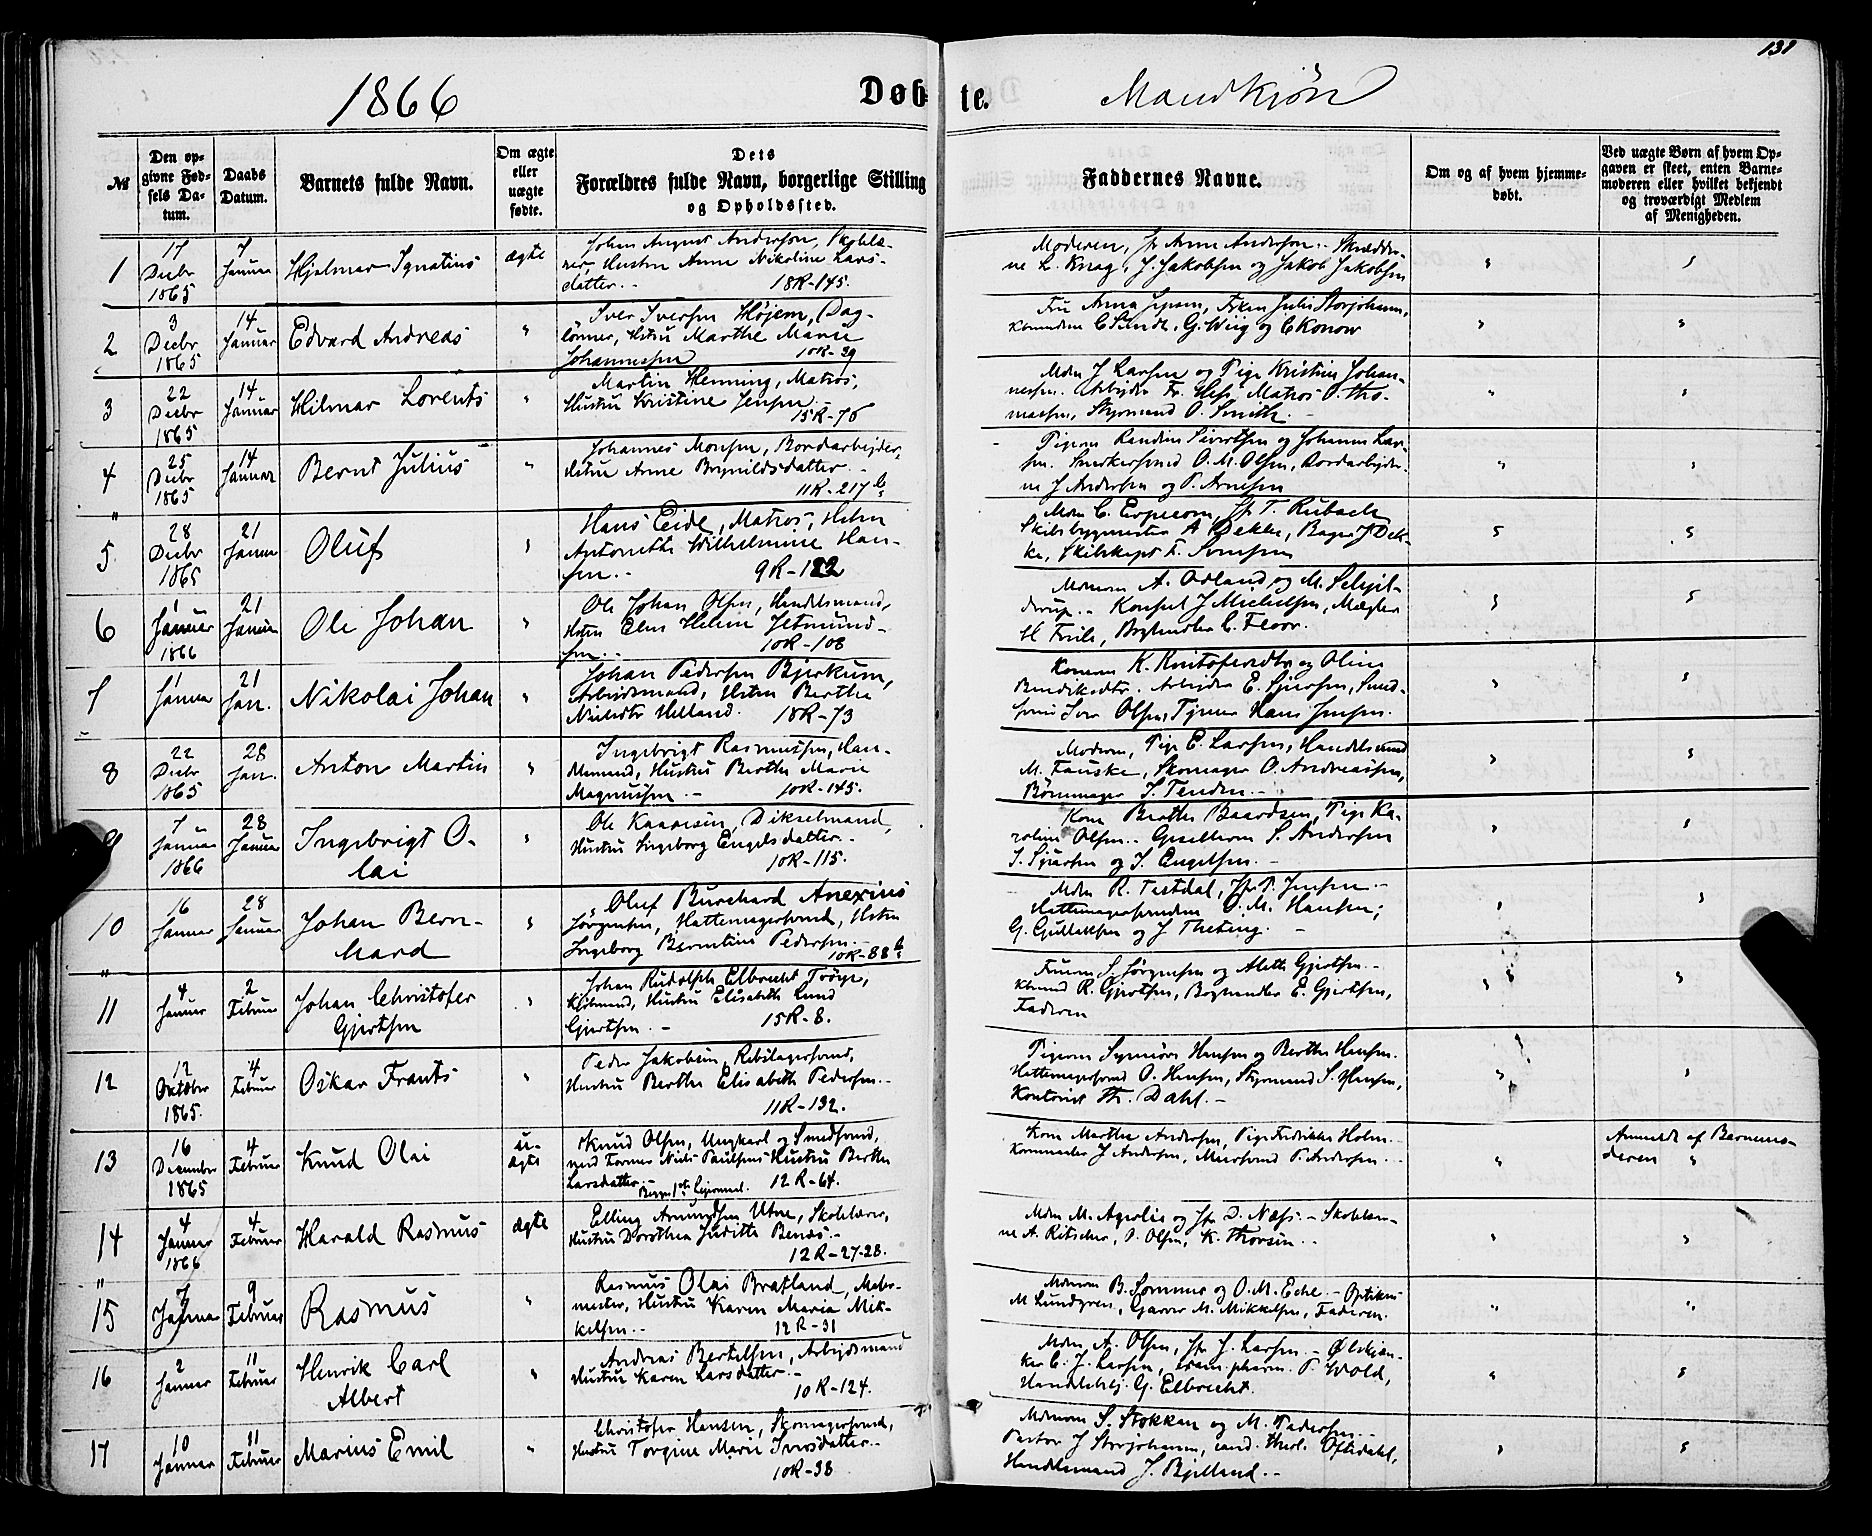 138
1866
Døbte.
Mandkjøn
№
Den opgivne Fødsels Datum.
Daabs Datum.
Barnets fulde Navn.
Om ægte eller uægte fødte.
Dets Forældres fulde Navn, borgerlige Stilling og Opholdssted.
Faddernes Navne.
Om og af hvem hjemmedøbt.
Ved uægte Børn af hvem Opgaven er skeet, enten Barnemoderen eller hvilket bekjendt og troværdigt Medlem af Menigheden.
1
17 Decbr 1865
7 Januar
Hjalmar Ignatius
ægte
Johan August Anderson,
Hustru Anne Nikoline Lars-
datter. 18R-145.
Moderen, Jfr Anne Anderson. Skrædder-
ne L. Knag, J. Jakobsen og Jakob Jakobsen
2
3 Decbr 1865
14 Januar
Edvard Andreas
"
Iver Iversen Højem, Dag-
lønner, Hstru Marthe Marie
Johannessen 10R-39
Fru Anna Jepsen,
C Sundt, G. Wiig og C Konow
3
22 Decbr 1865
14 Januar
Hilmar Lorents
"
Martin Henning, Matros,
Hustru Kristine Jensen. 15R-76
Mdm J Larsen og Pige Kristine Johan-
nesen. Arbejder Fr. Hess, Matros O. Tho-
massen, Styrmand O. Smith.
4
25 Decbr 1865
14 Januar
Bernt Julius
"
Johannes Monsen, Bordarbejder,
Hstru Anne Brynildsdatter.
11R-217 b
Pigerne Randine Sivertsen og Johanne Lar-
sen. Snedkersvend O. M. Olsen, Bordarbejder-
ne J Andersen og P. Arnesen
5
28 Decbr 1865
21 Januar
Oluf
"
Hans Eide, Matros, Hstru
Antonette Wilhelmine Han-
sen. 9R-122
Mdm C. Jfr T. Rubach
Skibsbygmester A Dekke, Bager J Dek-
ke, Skibskapt
6
1 Januar 1866
21 Januar
Ole Johan
"
Ole Johan Olsen, Handelsmand,
Hstru Elen Helene Jetmund-
sen. 10R-108
Mdmerne A. Odland og M. Schjel-
derup. Konsul J Michelsen, Mægler
H Friele, Boghandler C. Floor.
7
1 Januar
21 Jan.
Nikolai Johan
"
Johan Pedersen Bjerkum,
Arbeidsmand, Hstru Berthe
Nielsdtr Helland. 18R-73
Konerne K. Kristofersdtr og Oline
Benediktsdtr. Arbejder E. Sjursen, Smed-
svend Iver Olsen, Tjener Hans Jensen.
8
22 Decbr 1865
28 Jan.
Anton Martin
"
Ingebrigt Rasmussen, Han-
delsmand, Hustru Berthe Marie
Magnussen. 10R-145.
Moderen, Pige E. Larsen, Handelsmand
M. Fauske, Skomager O. Andreassen,
J. Tenden.
9
7 Januar 1866
28 Januar
Ingebrigt O-
lai
"
Ole Knudsen,
Hustru Ingeborg Engelsdatter.
10R-115.
Kone Berthe Baardsen, Pige Ka-
roline Olsen. S. Andersen
S. Sjursen og J. Engelsen.
10
16 Januar
28 Januar
Johan Bern-
hard
"
Oluf Burchard Anexius
Jørgensen, Hattemagersvend, Hstru
Ingeborg Berntine Pedersen.
10R-88 b
Mdm R. Testdal, Jfr T. Jensen.
Hattemagersvendene O. M. Hansen,
G. Gullaksen og J Theting.
11
4 Januar
2 Februar
Johan Christofer
Gjertsen
"
Johan Rudolph Elbrecht Trøye,
Kjøbmand, Hustru Elisabeth Lund
Gjertsen. 15R-8.
Fruerne S. Jørgensen og Alette Gjertsen.
R. Gjertsen, Boghandler E. Gjertsen,
Faderen
12
12 Oktober 1865.
4 Februar
Oskar Frants
"
Peder Jakobsen, Rebslagersvend,
Hustru Berthe Elisabeth Pedersen.
11R-132.
Pigerne Synnøve Hansen og Berthe Hansen.
Hattemagersvend O. Hansen, Styrmand S. Hansen,
Kontorist Th. Dahl.
13
16 December 1865
4 Februar
Knud Olai
u-
ægte
Knud Olsen, Ungkarl og Smedsvend,
med Former Niels Paulsens Hustru Berthe
Larsdatter. 12R-64.
Begges 1ste Lejermaal.
Kone Marthe Andersen, Pige Fredrikke Holm.
J Andersen, Murersvend P. Andersen.
Anmeldt af Barnemo-
deren
14
4 Januar 1866
4 Februar
Harald Rasmus
ægte
Elling Amundsen Utne, Skolelærer,
Hustru Dorothea Juditte Benæs.
12R-27-28.
Mdm M. Agerlie og Jfr D. Næss. Skolelærer-
ne A. Ritscher, O. Olsen, K. Thorsen.
15
7 Januar
9 Februar
Rasmus
"
Rasmus Olai Bratland, Maler-
mester, Hustru Karen Maria Mik-
kelsen. 12R-31
Mdmerne B. Sommer og O. M. Eche. Optikus
M Lundgren, Garver M. Mikkelsen, Faderen.
16
2 Januar
11 Februar
Henrik Carl
Albert
"
Andreas Bertelsen, Arbejdsmand
Hustru Karen Larsdatter.
10R-124.
Mdm A. Olsen, Jfr J. Larsen. Ølskjæn-
ker C. J. Larsen, exam. pharm. P. Wold,
Handelsbtj. G. Elbrecht.
17
10 Januar
11 Februar
Marius Emil
"
Christofer Hansen, Skomagersvend,
Hustru Torgine Marie Iversdatter.
10R-38
Mdmerne S. Stokken og M. Pedersen.
Pastor J Storjohann, cand. theol. Oftedahl,
Handelsmand J. Bjelland.